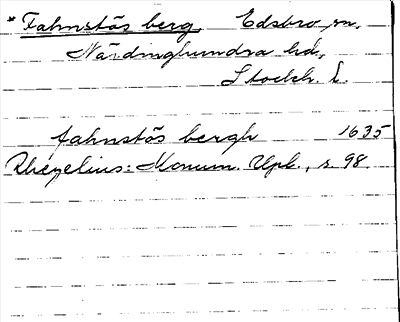 * Fahnstös berg Edsbro sn,
Närdinghundra hd,
Stockh. l.
fahnstös bergh 1635
Rhezelius: Monum. Upl., s. 98